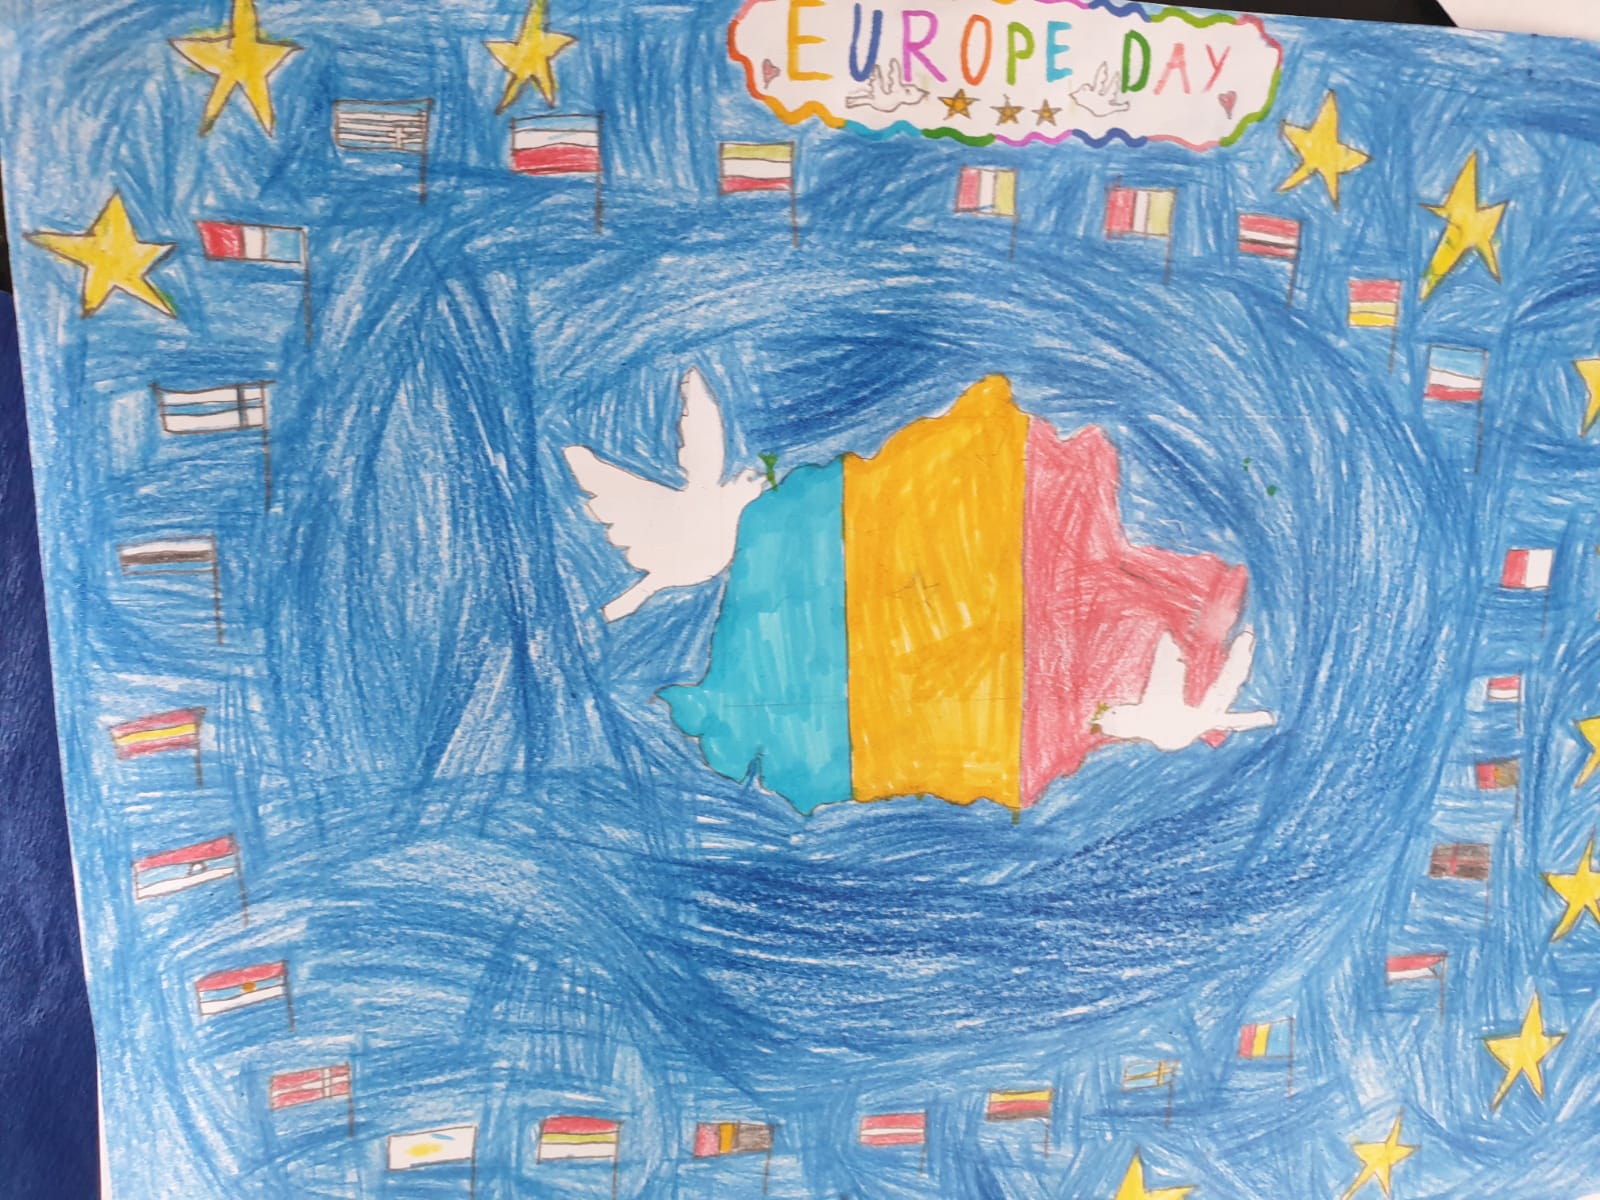 EUROPE DAY